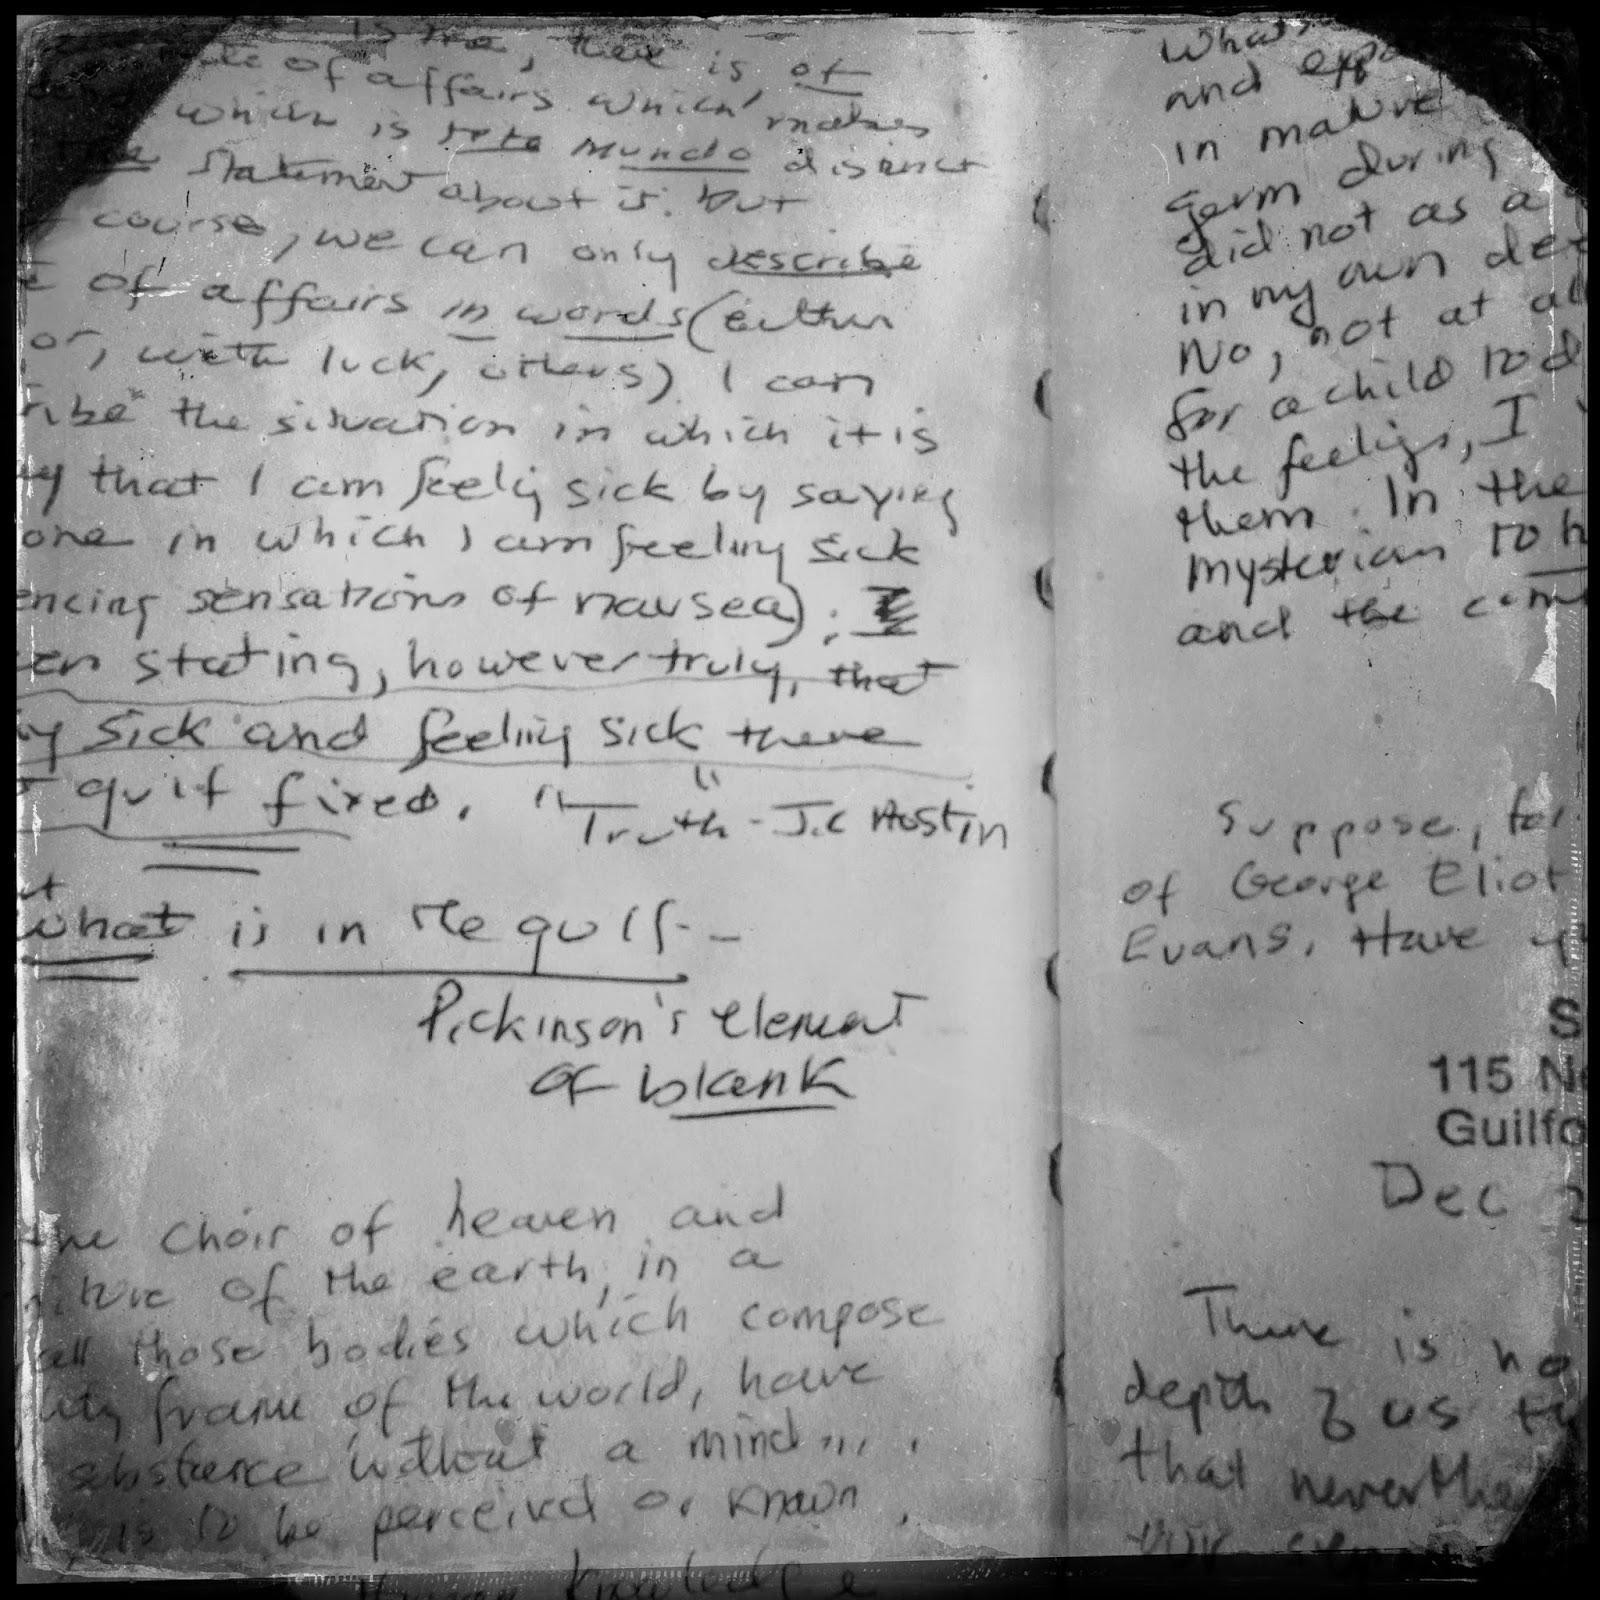 is true, there is of
of affairs which makes
which is toto mundo distinct
true statement about it. but
course, we can only describe
of affairs in words (either
or, with luck, others). I can
ribe" the situation in which it is
y that I am feelig sick by saying
one in which I am feeling sick
encing sensations of nausea);
en stating, however truly, that
ig sick and feeling sick there
gulf fixed. "Truth" - J.L Austin
what is in the gulf--
Dickinson's element
of blank
the choir of heaven and
iture of the earth, in a
all those bodies which compose
frame of the world, have
substance without a mind....
is to be perceived or known.
Human Knowledge
Whats
and
in mature
germ during
did not as a
in my own de
No, not at al
for a child to d
the feeligs, I
them. In the
mysterious to h
and the com
Suppose, for
of George Eliot
Evans. Have
S
115 N
Guilfo
Dec 2
There is no
depth of us th
that neverthe
our